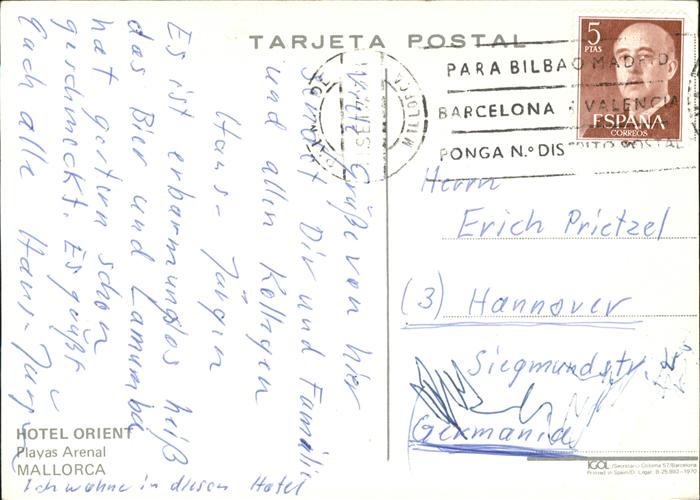 TARJETA POSTAL
5
PTAS
ESPAÑA
CORREOS
PARA BILBAO MADRID
BARCELONA Y VALENCIA
PONGA N.º DISTRITO POSTAL
Viele Grüße von hier
sendet Dir und Familie
und allen Kollegen
Hans-Jürgen
Es ist erbarmungslos heiß
das Bier und Lamumba
hat gestern schon
geschmeckt. Es grüßt
Euch alle Hans-Jürg
Herrn
Erich Prietzel
(3) Hannover
Siegmundstr.
Germania
HOTEL ORIENT
Playas Arenal
MALLORCA
Ich wohne in diesem Hotel
IGOL
Printed in Spain